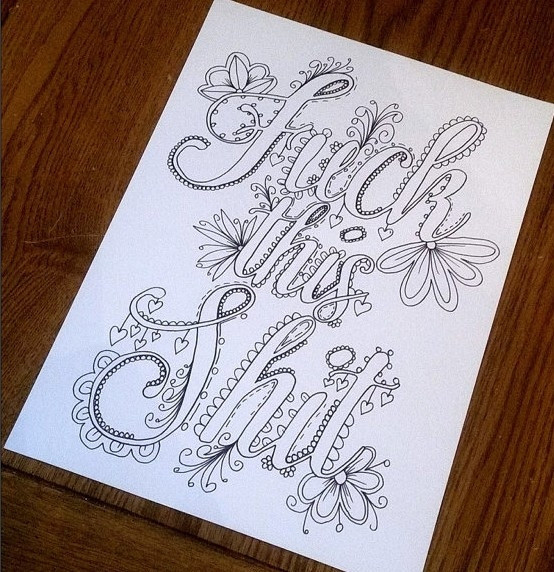 Fuck
this
Shit